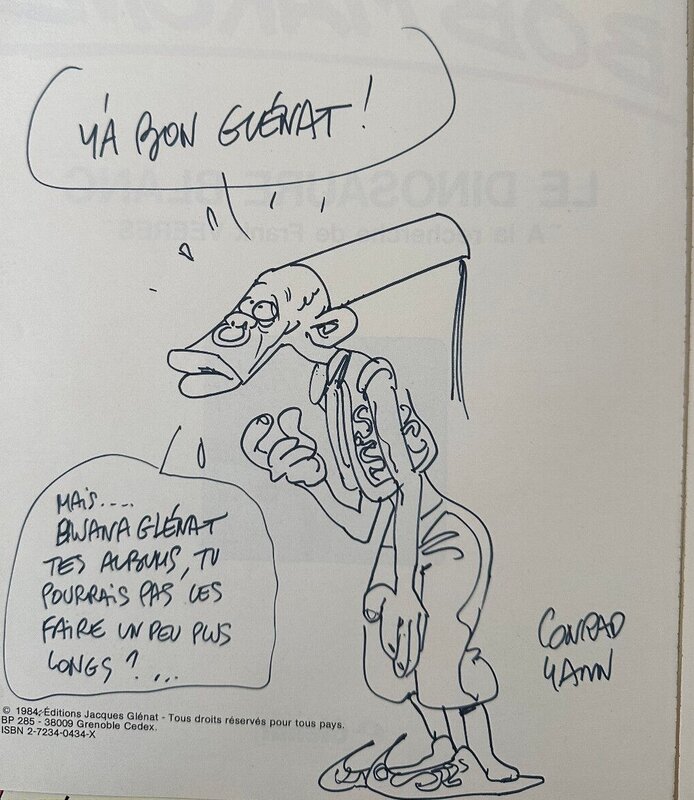 Y'A BON GLÉNAT !
MAIS....
BWANA GLÉNAT
TES ALBUMS, TU
POURRAIS PAS LES
FAIRE UN PEU PLUS
LONGS ? ...
CONRAD
YANN
© 1984, Éditions Jacques Glénat - Tous droits réservés pour tous pays.
BP 285 - 38009 Grenoble Cedex.
ISBN 2-7234-0434-X
LE DINOSAURE BLANC
A la recherche de Frank VEERES